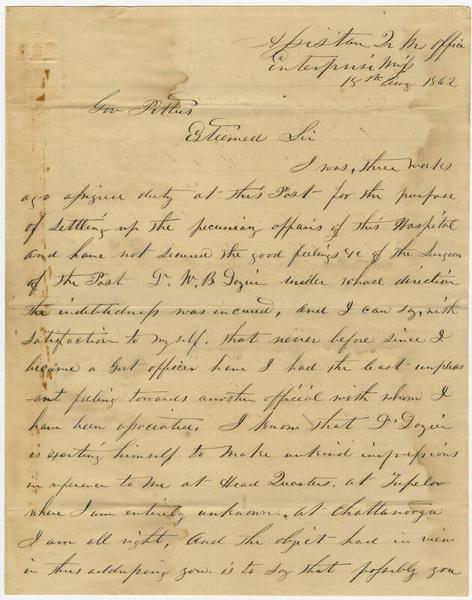 Assistan Qr M Office
Enterprise Miss
15th Aug 1862
Gov Pettus
Esteemed Sir
I was, three weeks
ago assigned duty at this Post for the purpose
of settling up the pecuniary affairs of this Hospital
and have not secured the good feelings &c of the Surgeon
of the Post Dr W. B Dozier under whose direction
the indebtedness was incured, and I can say, with
satisfaction to myself, that never before since I
became a Govt officer have I had the least unpleas
-ant feeling towards another official with whom I
have been associated. I know that Dr Dozier
is exerting himself to make unkind impressions
in reference to me at Head Quarters, at Tupelo
where I am entirely unknown, at Chattanooga
I am all right, And the object had in view
in thus addressing you is to say that possibly you